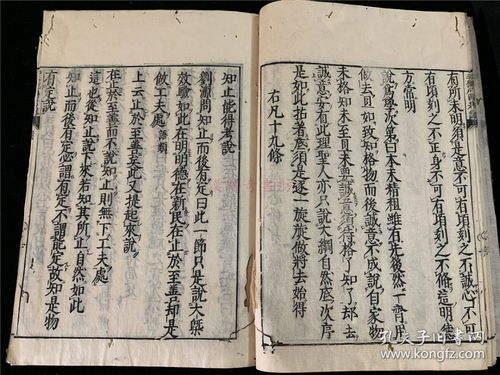 有所未明須是意不可有頃刻之不誠心不可
有頃刻之不正身不可有頃刻之不脩這明德
方當明
說為學次第曰本末精粗雖有先後然一齊用
做去且如致知格物而後誠意不成說自家物
未格知未至且未要誠意須待格了知了却去
誠意安有此理聖人亦只說大綱自然底次序
是如此拈著底須是逐一旋旋做將去始得
右凡十九條
知止能得考說
劉淵問知止而後有定曰此一節只是說大槩
效驗如此在明明德在新民在止於至善却是
做工夫處 語類
上云止於至善至此又提起來說
在止於至善而不說知止則無下工夫處
這也從知止說下來若知其所止自然如此
知止而後有定必謂有定不謂能定故知是物
有定說
孔夫子旧书网
www.kongfz.com